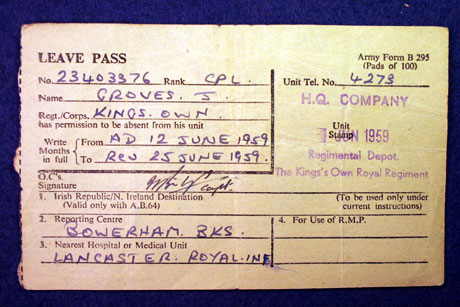 LEAVE PASS Army Form B 295
(Pads of 100)
No. 23403376 Rank CPL. Unit Tel. No. 4273
Name GROVES. J
Regt./Corps. KINGS. OWN.
has permission to be absent from his unit
H.Q. COMPANY
Unit
Stamp
JUN 1959
Regimental Depot,
The King's Own Royal Regiment
Write Months in full
From AD 12 JUNE 1959
To REV 25 JUNE 1959.
O.C's.
Signature Capt.
1. Irish Republic/N. Ireland Destination (To be used only under
(Valid only with A.B.64) current instructions)
2. Reporting Centre 4. For Use of R.M.P.
BOWERHAM. BKS.
3. Nearest Hospital or Medical Unit
LANCASTER. ROYAL. INF